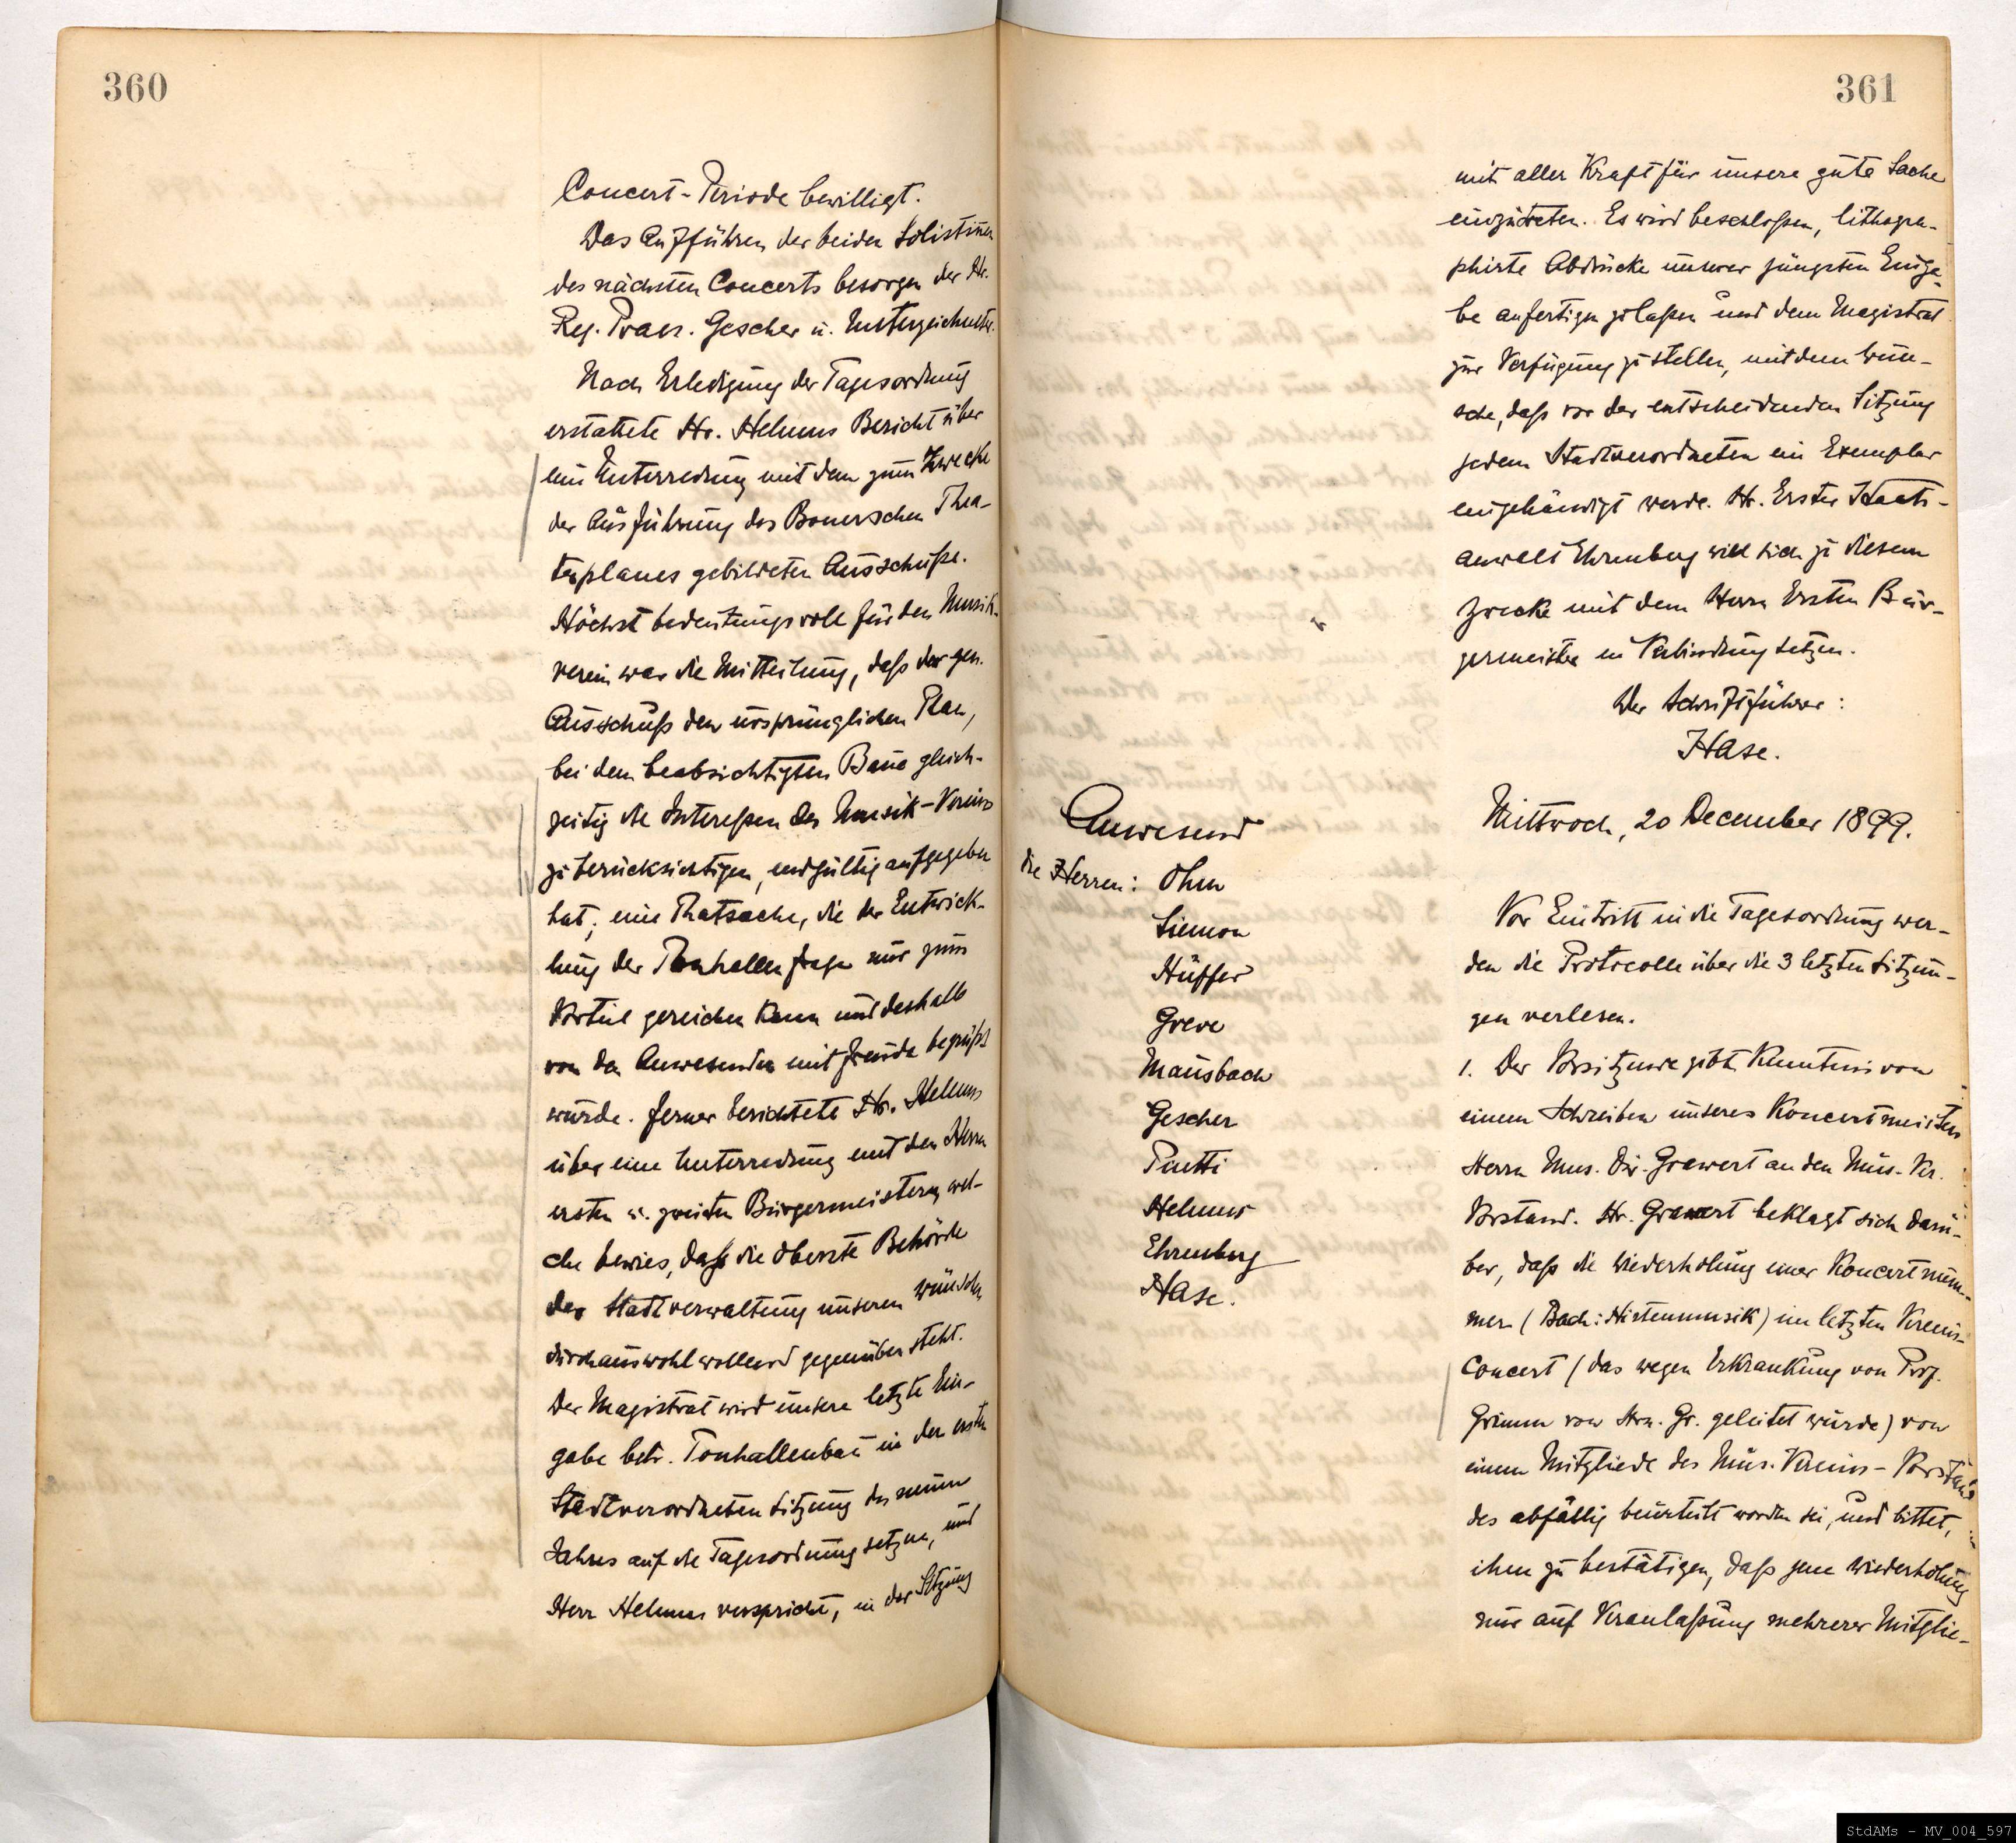 360
Concert-Periode bewilligt.
Das Aufführen der beiden Solistinnen
des nächsten Concerts besorgen der Hr.
Reg. Praes. Gescher u. Unterzeichneter.
Nach Erledigung der Tagesordnung
erstattete Hr. Helmus Bericht über
eine Unterredung mit dem zum Zwecke
der Ausführung des Bonerschen Thea-
terplanes gebildeten Ausschuße.
Höchst bedeutungsvoll für den Musik-
verein war die Mitteilung, daß der gen.
Ausschuß den ursprünglichen Plan,
bei dem beabsichtigten Baue gleich-
zeitig die Intereßen des Musik-Vereins
zu berücksichtigen, endgültig aufgegeben
hat; eine Thatsache, die der Entwick-
lung der Tonhallenfrage nur zum
Vorteil gereichen kann und deshalb
von den Anwesenden mit Freude begrüßt
wurde. Ferner berichtete Hr. Helmus
über eine Unterredung mit den Herrn
ersten u. zweiten Bürgermeistern, wel-
che bewies, daß die oberste Behörde
der Stadtverwaltung unseren Wünschen
durchaus wohlwollend gegenüber steht.
Der Magistrat wird unsere letzte Ein-
gabe betr. Tonhallenbau in der ersten
Stadtverordneten Sitzung des neuen
Jahres auf die Tagesordnung setzen, und
Herr Helmus verspricht, in der Sitzung
361
mit aller Kraft für unsere gute Sache
einzutreten. Es wird beschloßen, lithogra-
phirte Abdrücke unserer jüngsten Einga-
be anfertigen zu laßen und dem Magistrat
zur Verfügung zu stellen, mit dem Wun-
sche, daß vor der entscheidenden Sitzung
jedem Stadtverordneten ein Exemplar
eingehändigt werde. Hr. Erster Staats-
anwalt Ehrenberg will sich zu diesem
Zwecke mit dem Herrn Ersten Bür-
germeister in Verbindung setzen.
Der Schriftführer:
Hase.
Mittwoch, 20 December 1899.
Anwesend
die Herren: Ohm
Siemon
Hüffer
Greve
Mausbach
Gescher
Piutti
Helmus
Ehrenberg
Hase.
Vor Eintritt in die Tagesordnung wer-
den die Protocolle über die 3 letzten Sitzun-
gen verlesen.
1. Der Vorsitzende gibt Kenntnis von
einem Schreiben unseres Koncertmeisters
Herrn Mus. Dir. Grawert an den Mus. Ver.
Vorstand. Hr. Grawert beklagt sich darü-
ber, daß die Wiederholung einer Koncertnum-
mer (Bach: Hirtenmusik) im letzten Vereins-
Concert (das wegen Erkrankung von Prof.
Grimm von Hrn. Gr. geleitet wurde) von
einem Mitgliede des Mus. Vereins-Vorstan-
des abfällig beurteilt worden sei, und bittet,
ihm zu bestätigen, daß jene Wiederholung
nur auf Veranlaßung mehrerer Mitglie-
StdAMs - MV_004_597